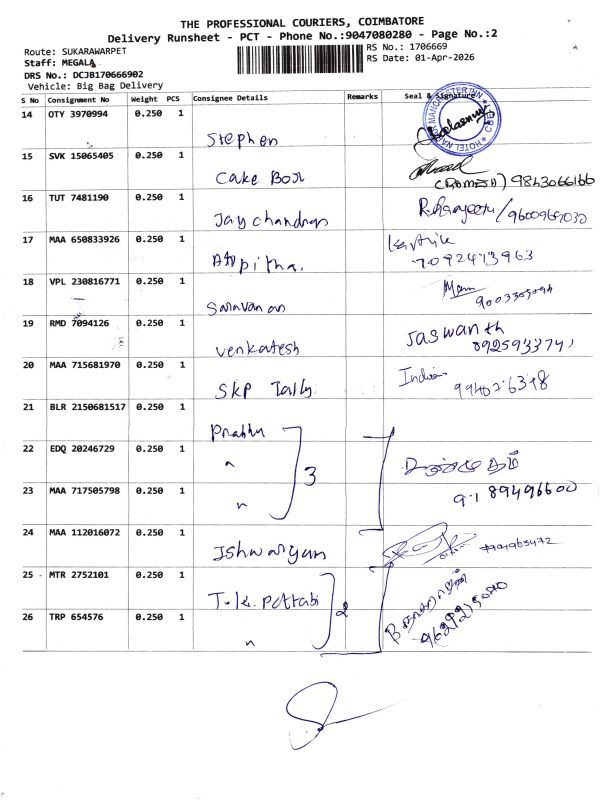 THE PROFESSIONAL COURIERS, COIMBATORE
Delivery Runsheet - PCT - Phone No.:9047080280 - Page No.:2
Route: SUKARAWARPET
RS No.: 1706669
Staff: MEGALA
RS Date: 01-Apr-2026
DRS No.: DCJB170666902
Vehicle: Big Bag Delivery
S No Consignment No Weight PCS Consignee Details Remarks Seal & Signature
14 OTY 3970994 0.250 1
Stephen
15 SVK 15065405 0.250 1
Cake Box (RAMESH) 9843066166
16 TUT 7481190 0.250 1
Jay chandran
17 MAA 650833926 0.250 1
Karthik
Arpitha. 7092473963
18 VPL 230816771 0.250 1
Saravanan
19 RMD 7094126 0.250 1
Jaswanth
venkatesh
20 MAA 715681970 0.250 1
SKP Tally
21 BLR 2150681517 0.250 1
Prabhu
22 EDQ 20246729 0.250 1
" 3
23 MAA 717505798 0.250 1
"
24 MAA 112016072 0.250 1
Ishwaryam
25 MTR 2752101 0.250 1
T.K. 2
26 TRP 654576 0.250 1
"